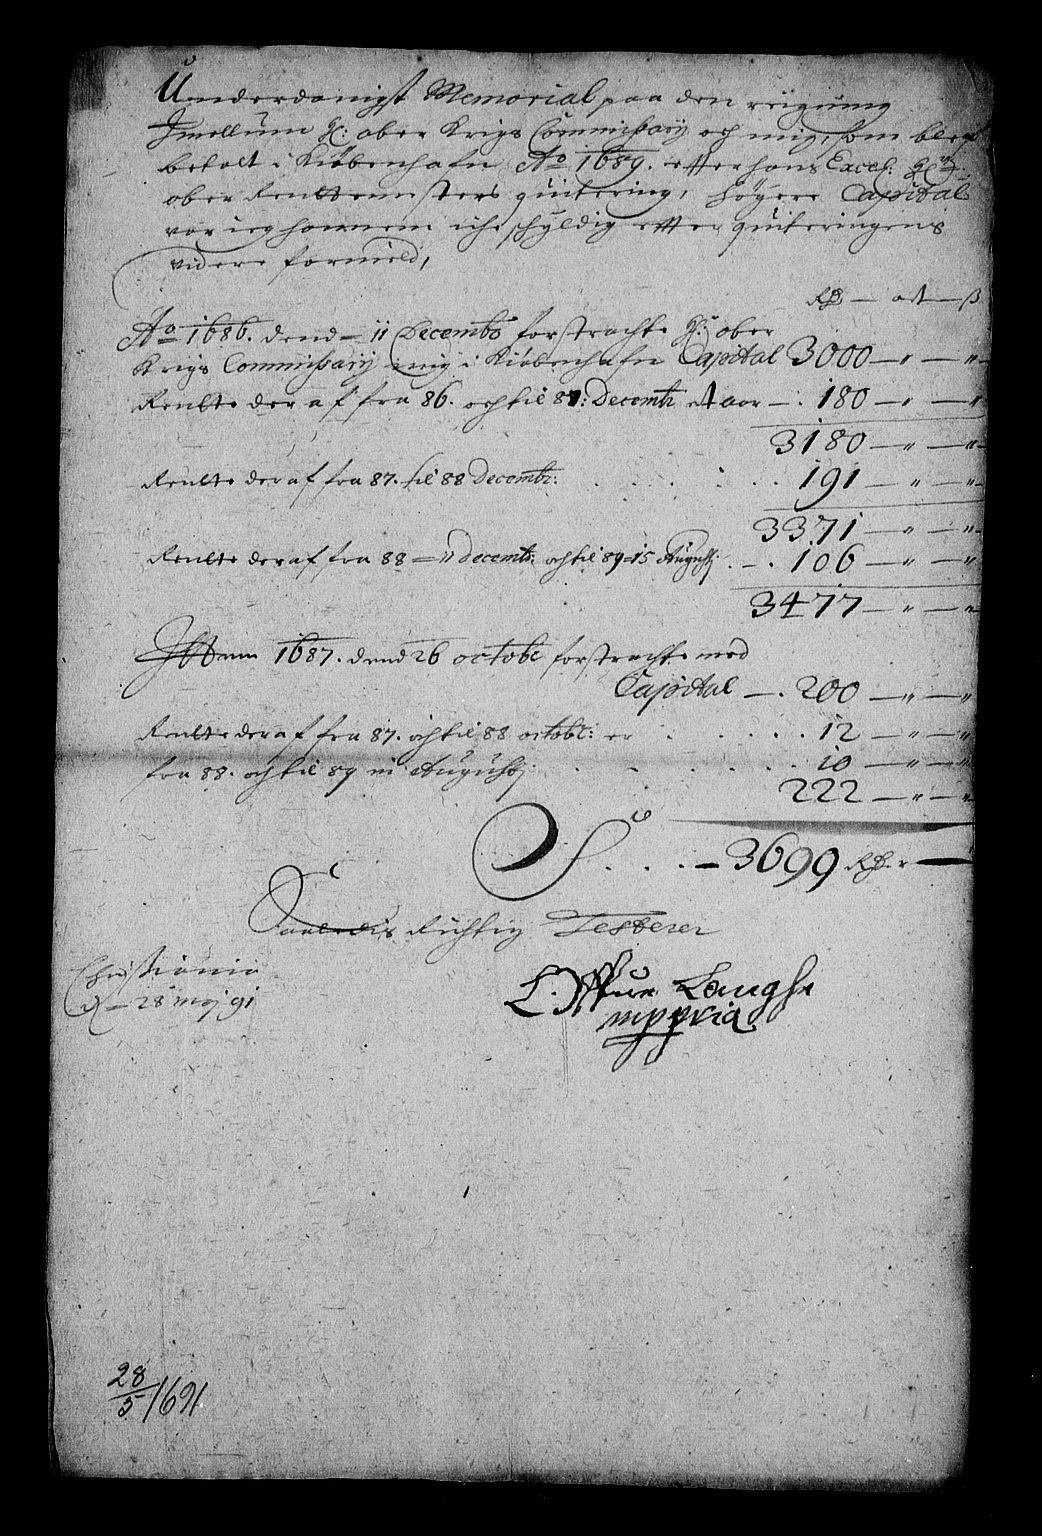 Underdanigst Memorial paa den reigning
Imellum H: ober Krigs Commissary och mig, som blef
betalt i Kiøbenhafn Ao 1689. efter hans Excel: H:
ober Rentemesters quitering, høyere Capital
var ieg honnem iche schyldig effter quiteringens
videre formeld,
Rd — ort — ß
Ao 1686. dend 11 Decembr forstrachte H: ober
Krigs Commissary mig i Kiøbenhafn Capital 3000 — " — "
Rente der af fra 86. och til 87: Decembr et aar — . 180 — " — "
3180 — " — "
Rente der af fra 87. til 88 Decembr: . . . . . 191 — " — "
3371 — " — "
Rente der af fra 88 = 11 decembr: och til 89 = 15 Augustj . — . 106 — " — "
3477 — " — "
Ittem 1687. dend 26 octobr forstrachte med
Capital — . 200 — " — "
Rente der af fra 87. och til 88 octobr: er . . . . . 12 — " — "
fra 88. och til 89 in Augustj . . . . . . 10 — " — "
222 — " — "
S . . . — 3699 Rd. " —
Saaledis Richtig Testerer
Christiania
d — 28 maj 91
Langhe
mppria
28/5 1691